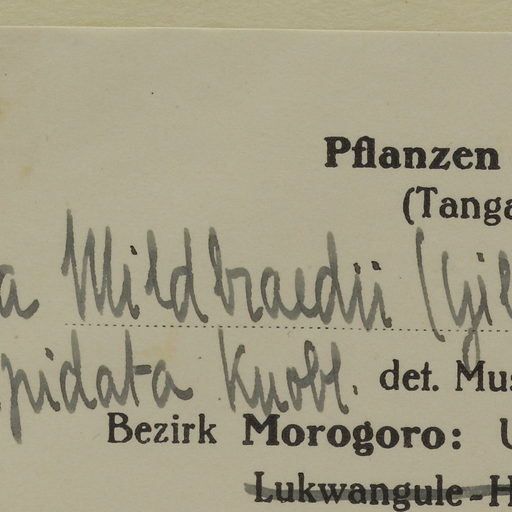 Pflanzen
(Tanga
a Mildbraedii (Gil
pidata Knobl. det. Mus
Bezirk Morogoro: U
Lukwangule-H